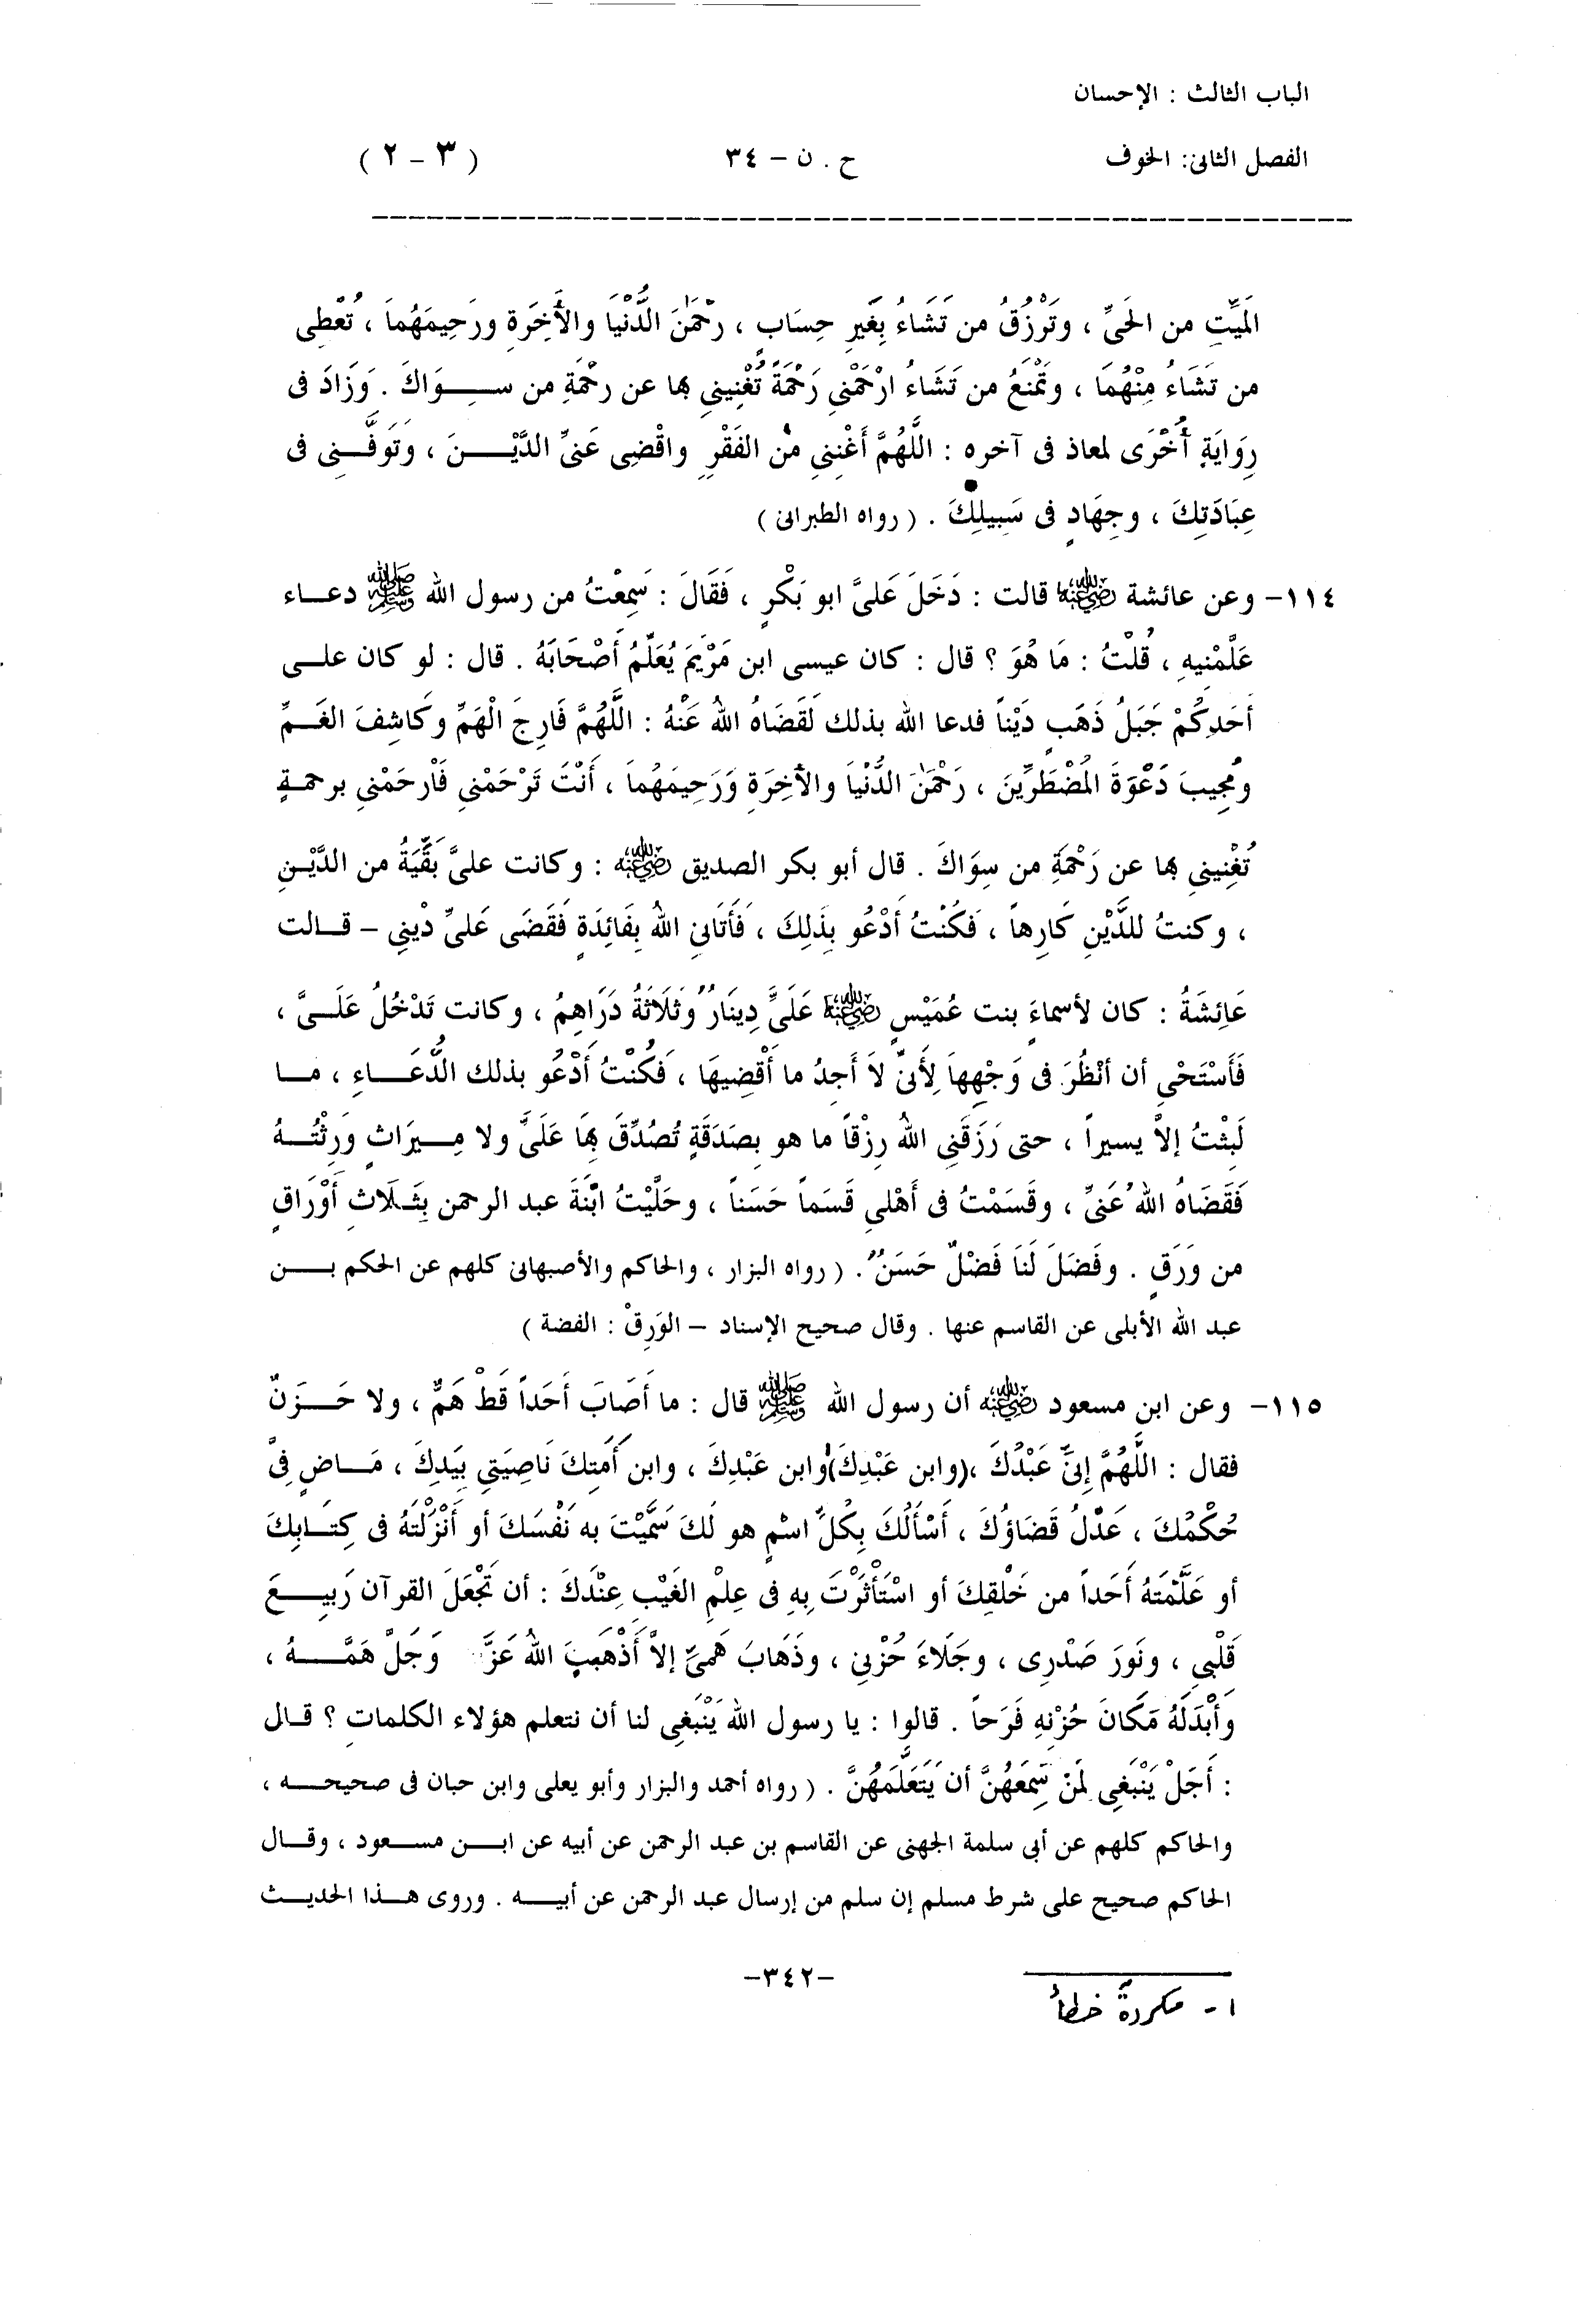 الباب الثالث : الإحسان
الفصل الثانى: الخوف ح . ن – ٣٤ ( ٣ - ٢ )
المَيِّتِ من الحَىِّ ، وتَرْزُقُ من تَشَاءُ بِغَيرِ حِسَابٍ ، رَحْمٰنَ الدُّنْيَا والأَخِرَةِ ورَحِيمَهُماَ ، تُعْطِى
من تَشَاءُ مِنْهُمَا ، وتَمْنَعُ من تَشَاءُ ارْحَمْنِي رَحْمَةً تُغْنِينِي بها عن رحْمَةِ من سِـــوَاكَ . وَزَادَ فى
رِوَايَةٍ أُخْرَى لمعاذ فى آخره : اللَّهُمَّ أَغْنِنِي مِن الفَقْرِ واقْضِى عَنىِّ الدَّيْـــنَ ، وَتَوَفَّــنِى فى
عِبَادَتِكَ ، وجِهَادٍ فى سَبِيلِكَ . ( رواه الطبرانى )
١١٤– وعن عائشة رضي الله عنها قالت : دَخَلَ عَلَىَّ ابو بَكْرٍ ، فَقَالَ : سَمِعْتُ من رسول الله ﷺ دعـاء
عَلَّمْنِيهِ ، قُلْتُ : مَا هُوَ ؟ قال : كان عيسى ابن مَرْيَمَ يُعَلِّمُ أَصْحَابَهُ . قال : لو كان علـى
أحَدِكُمْ جَبَلُ ذَهَبٍ دَيْناً فدعا الله بذلك لَقَضَاهُ اللهُ عَنْهُ : اللَّهُمَّ فَارِجَ الْهَمِّ وكَاشِفَ الغَـمِّ
ومُجِيبَ دَعْوَةَ المُضْطَرِّينَ ، رَحْمٰنَ الدُّنْيَا والأَخِرَةِ وَرَحِيمَهُماَ ، أَنْتَ تَرْحَمْنِي فَاْرحَمْنِي برحمـةٍ
تُغْنِينِي بها عن رَحْمَةِ من سِوَاكَ . قال أبو بكر الصديق رضي الله عنه : وكانت علىَّ بَقِّيَةُ من الدَّيْنِ
، وكنتُ للدَّيْنِ كَارِهاً ، فَكُنْتُ أَدْعُو بِذَلِكَ ، فَأَتَانِىَ اللهُ بِفَائِدَةٍ فَقَضَى عَلىِّ دْينِي – قـالت
عَائِشَةُ : كان لأسماءَ بنت عُمَيْسٍ رضي الله عنها عَلَىَّ دِينَارٌ وثَلَاثَةُ دَرَاهِمُ ، وكانت تَدْخُلُ عَلَـىَّ ،
فَأَسْتَحْىِ أن أنْظُرَ فى وَجْهِهاَ لِأَنىِّ لاَ أَجِدُ ما أَقْضِيهَا ، فَكُنْتُ أَدْعُو بذلك الدُّعَـــاءِ ، مـا
لَبِثْتُ إلاَّ يسيراً ، حتى رَزَقَنِى اللهُ رِزْقاً ما هو بِصَدَقَةٍ تُصُدِّقَ بِهَا عَلَىَّ ولا مِـيرَاثٍ وَرِثْتُـهُ
فَقَضَاهُ اللهُ عَنىِّ ، وقَسَمْتُ فى أَهْلى قَسَماً حَسَناً ، وحَلَّيْتُ ابْنَةَ عبد الرحمن بِثَـلَاثِ أَوْرَاقٍ
من وَرَقٍ . وفَضَلَ لَنَا فَضْلٌ حَسَنٌ . ( رواه البزار ، والحاكم والأصبهانى كلهم عن الحكم بـــن
عبد الله الأبلى عن القاسم عنها . وقال صحيح الإسناد – الوَرِقْ : الفضة )
١١٥– وعن ابن مسعود رضي الله عنه أن رسول الله ﷺ قال : ما أصَابَ أحَداً قَطْ هَمٌّ ، ولا حَـــزَنٌ
فقال : اللَّهُمَّ إنىِّ عَبْدُكَ ،(وابن عَبْدِكَ)١وابن عَبْدِكَ ، وابن أَمَتِكَ نَاصِيَتِي بِيَدِكَ ، مَـاضٍ فِىَّ
حُكْمُكَ ، عَدْلُ قَضَاؤُكَ ، أَسْأَلُكَ بِكُلِّ اسْمٍ هو لَكَ سَمَّيْتَ به نَفْسَكَ أو أَنْزَلْتَهُ فى كِتَـابِكَ
أو عَلَّمْتَهُ أَحَداً من خَلْقِكَ أو اسْتَأْثَرْتَ بِهِ فى عِلْمِ الغَيْبِ عِنْدَكَ : أن تَجْعَلَ القرآن رَبِيـعَ
قَلْبِي ، ونَورَ صَدْرِى ، وجَلَاءَ حُزْنِي ، وذَهَابَ هَمىِّ إلاَّ أَذْهَبَ اللهُ عَزَّ وَجَلْ هَمَّـــهُ ،
وَأَبْدَلَهُ مَكَانَ حُزْنِهِ فَرَحاً . قالوا : يا رسول الله يَنْبَغِى لنا أن نتعلم هؤلاء الكلمات ؟ قـال
: أَجَلْ يَنْبَغِى لمَنْ سَمِعَهُنَّ أن يَتَعَلَّمَهُنَّ . ( رواه أحمد والبزار وأبو يعلى وابن حبان فى صحيحـــه ،
والحاكم كلهم عن أبى سلمة الجهنى عن القاسم بن عبد الرحمن عن أبيه عن ابـــن مسـعود ، وقـال
الحاكم صحيح على شرط مسلم إن سلم من إرسال عبد الرحمن عن أبيـــه . وروى هـــذا الحديـث
–٣٤٢–
١ - مكررة خطأ